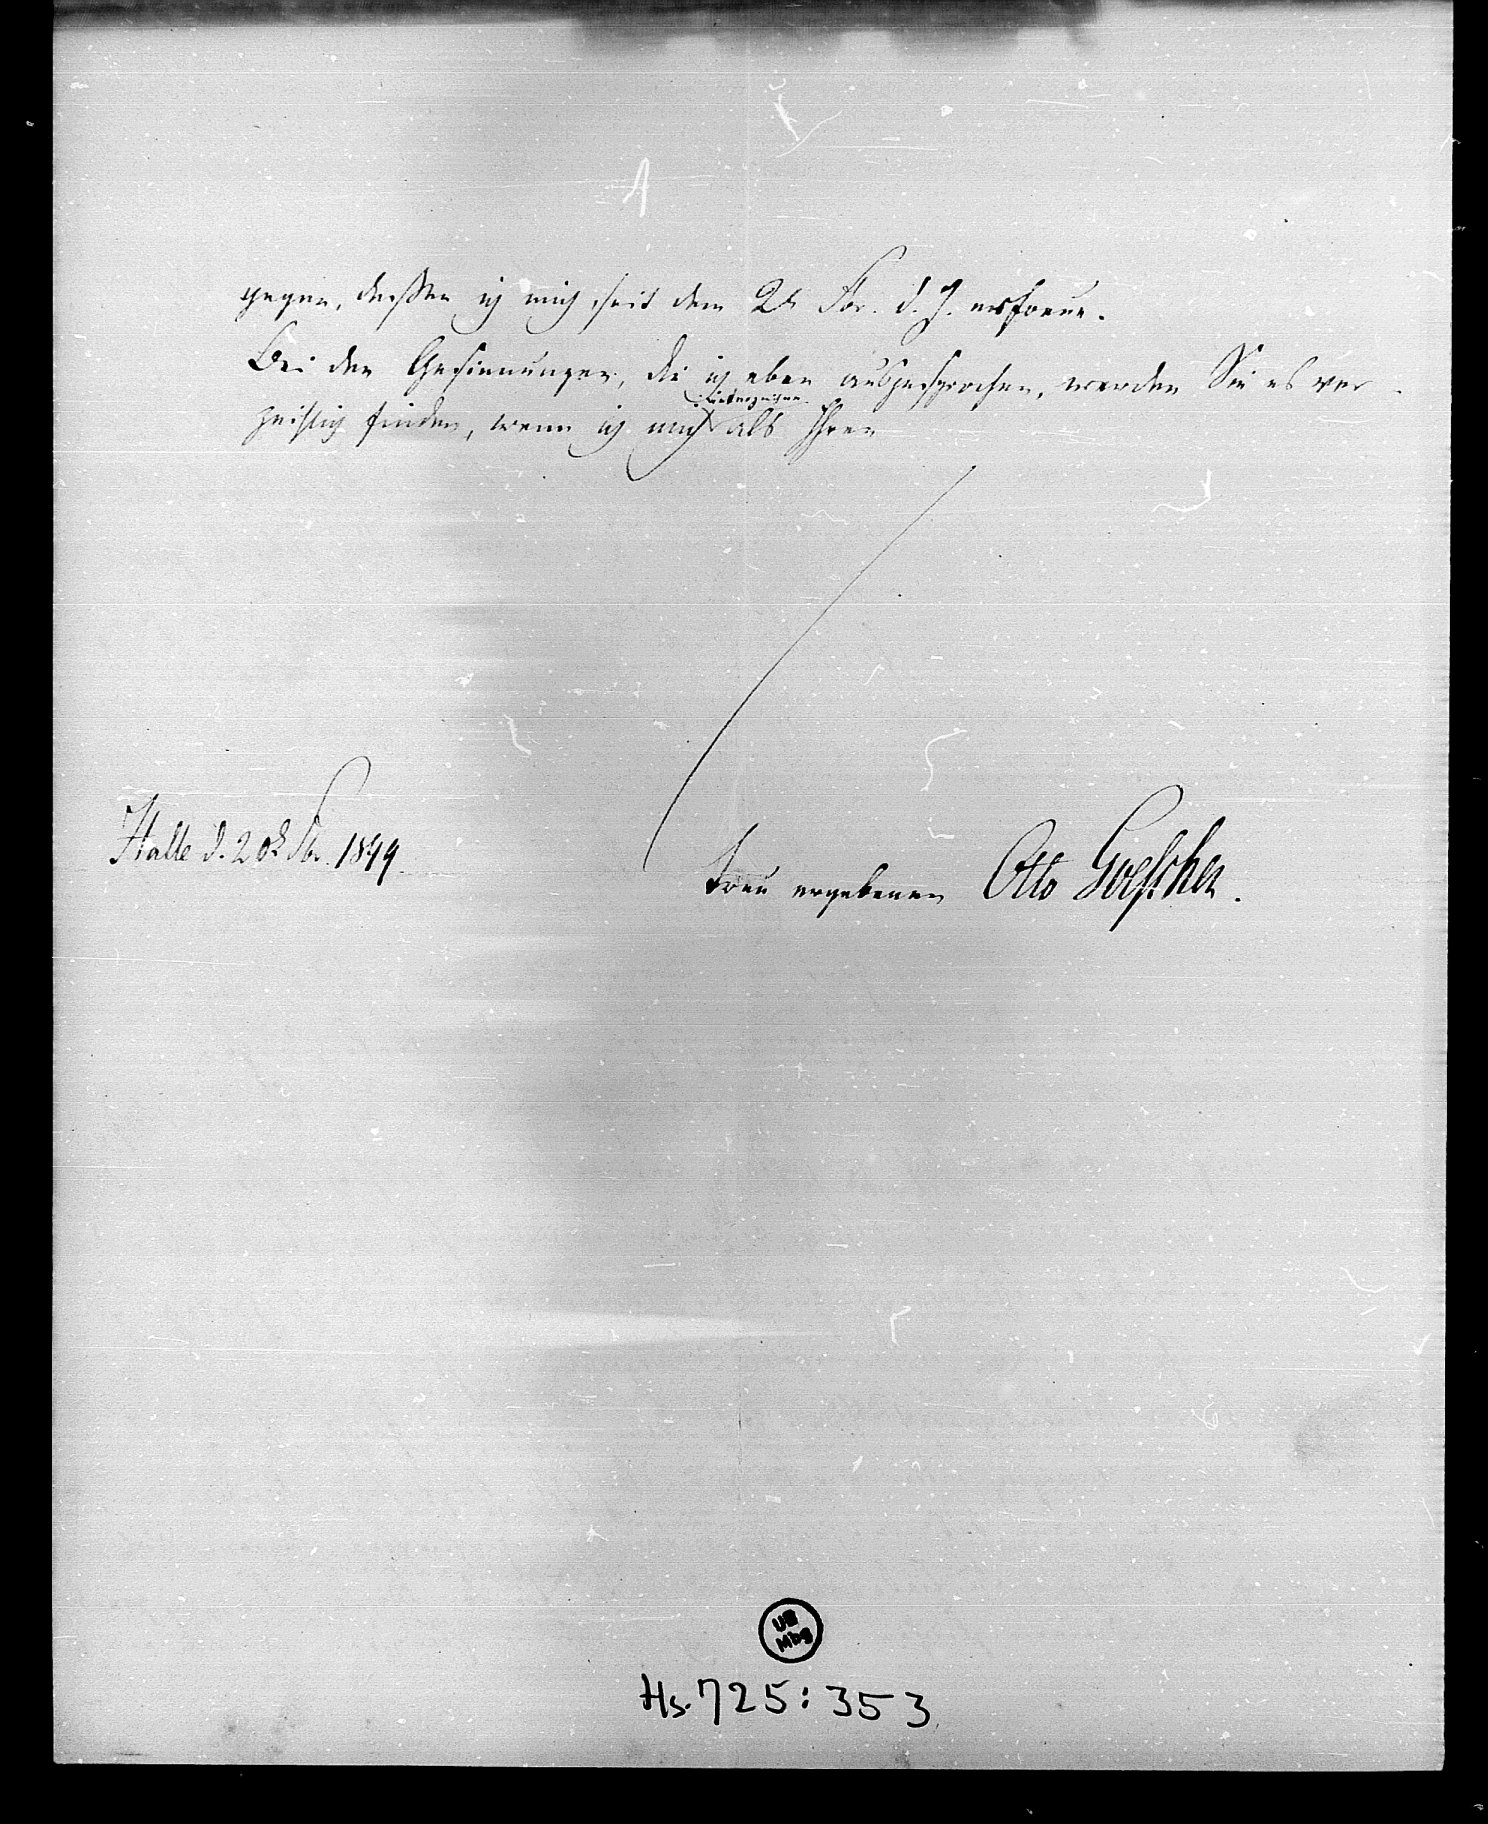 gegen, dessen ich mich seit dem 2t Fbr. d. J. erfreue.
Bei den Gesinnungen, die ich eben ausgesprochen, werden Sie es ver-
zeihlich finden, wenn ich mich unterzeichne als Ihren
Halle d. 20t Fbr. 1844.
treu ergebenen Otto Goeschen.
UB
Mbg
Hs. 725:353